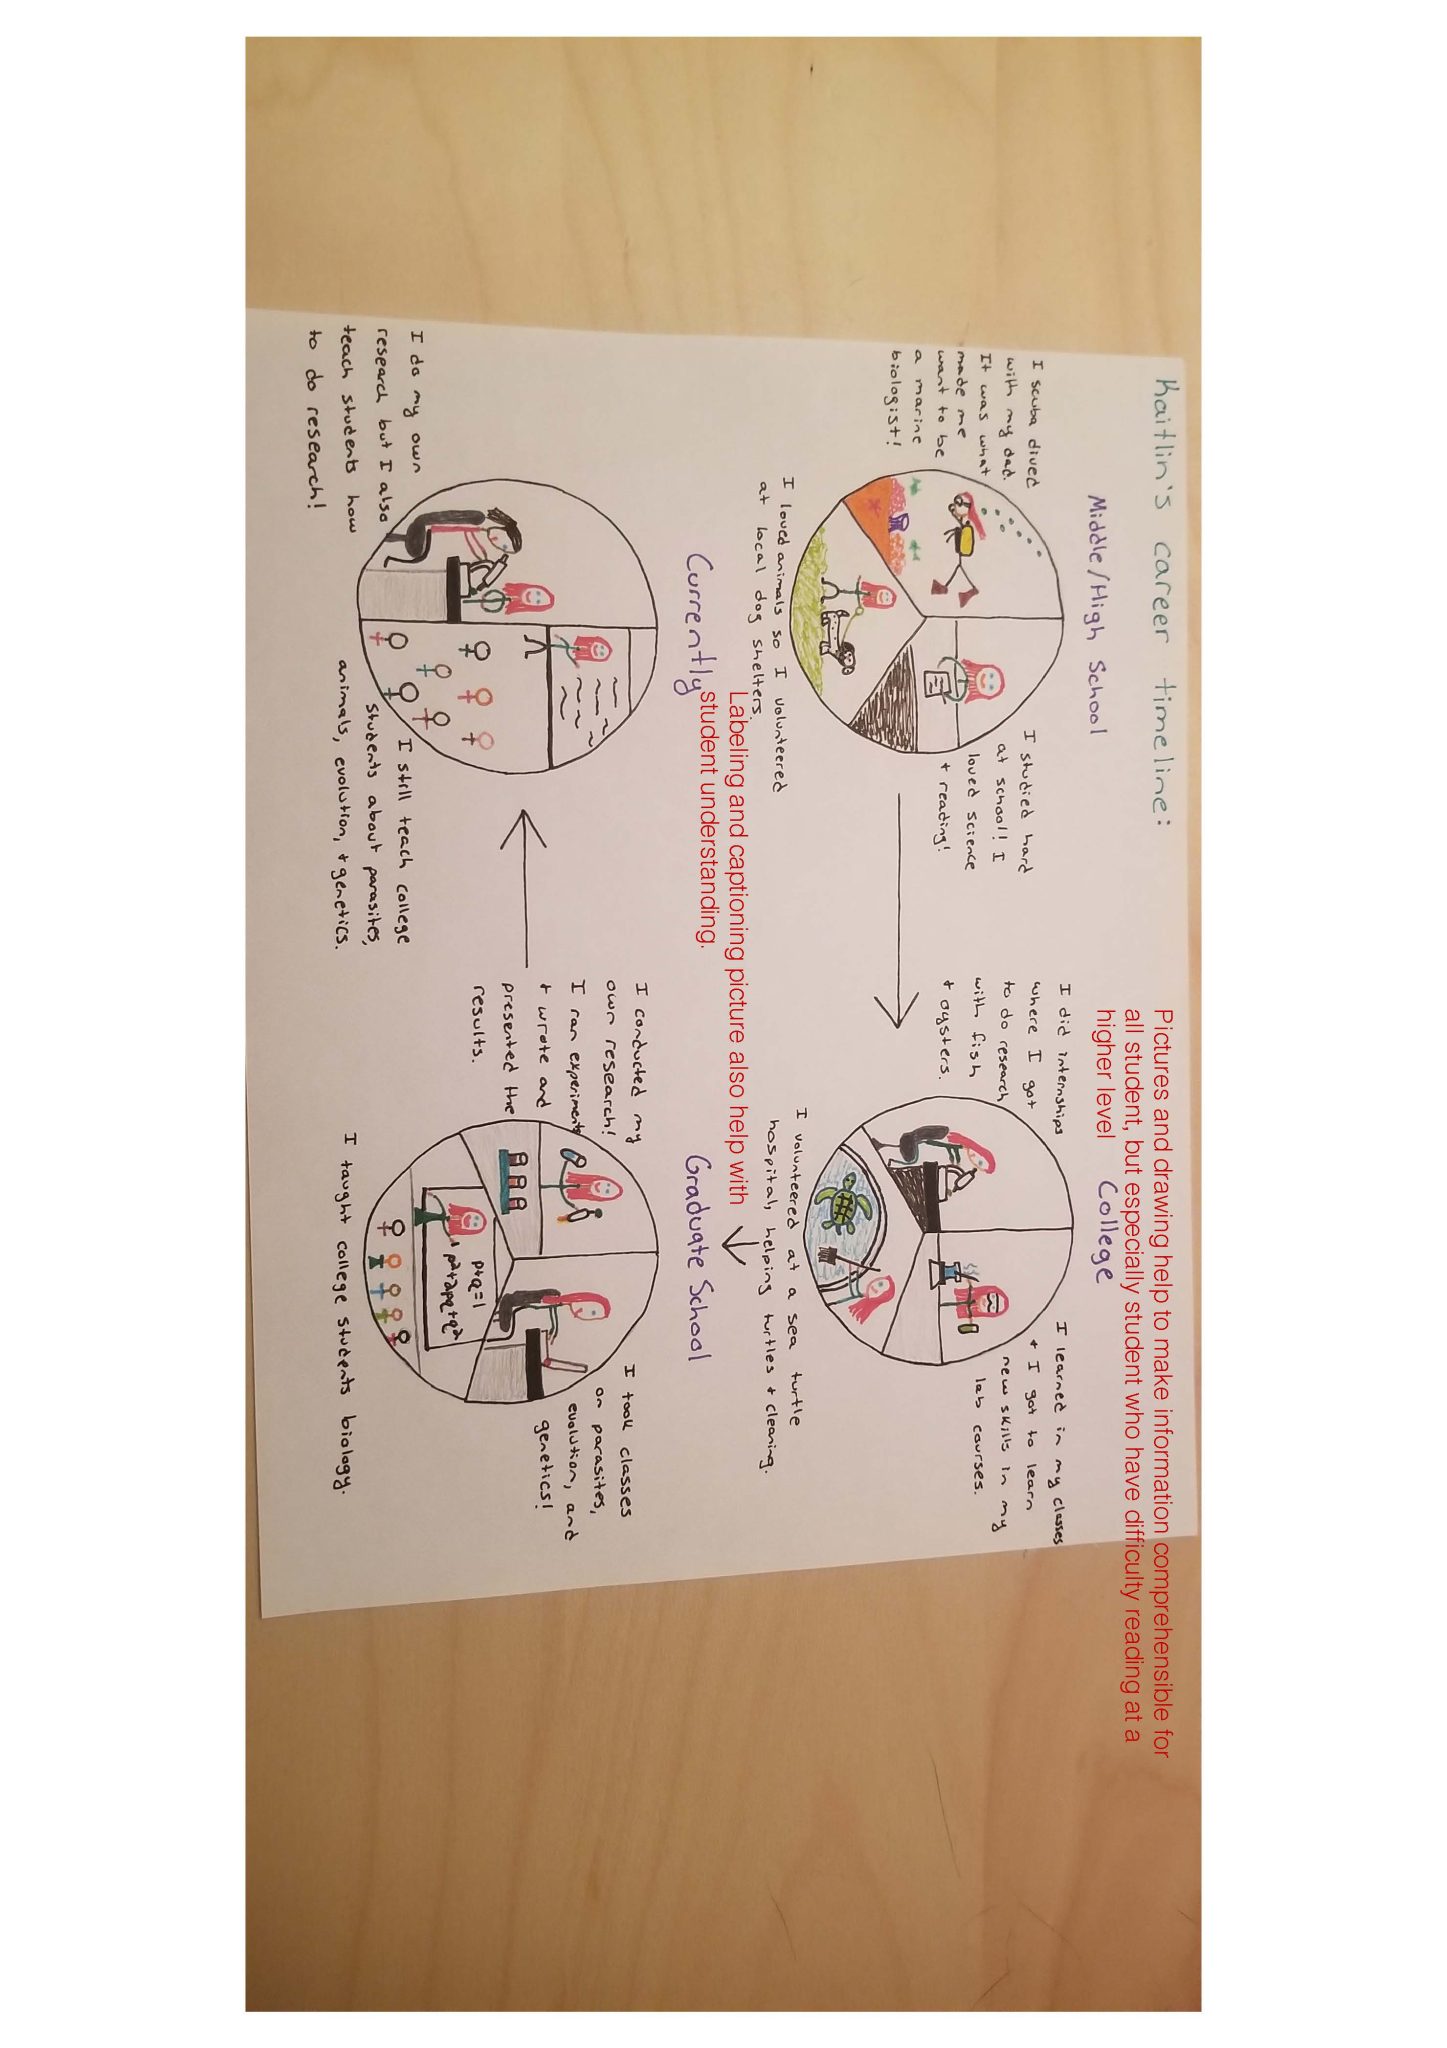 Kaitlin's career timeline:
Pictures and drawing help to make information comprehensible for
all student, but especially student who have difficulty reading at a
higher level
Middle/High School
I scuba dived
with my dad.
It was what
made me
want to be
a marine
biologist!
I studied hard
at school!! I
loved science
+ reading!
I loved animals so I volunteered
at local dog shelters.
College
I did internships
where I got
to do research
with fish
+ oysters.
I learned in my classes
+ I got to learn
new skills in my
lab courses.
I volunteered at a sea turtle
hospital, helping turtles + cleaning.
Labeling and captioning picture also help with
student understanding.
Currently
I do my own
research but I also
teach students how
to do research!
I still teach college
students about parasites,
animals, evolution, + genetics.
Graduate School
I conducted my
own research!
I ran experiments
+ wrote and
presented the
results.
I took classes
on parasites,
evolution, and
genetics!
p+q=1
p²+2pq+q²
I taught college students biology.